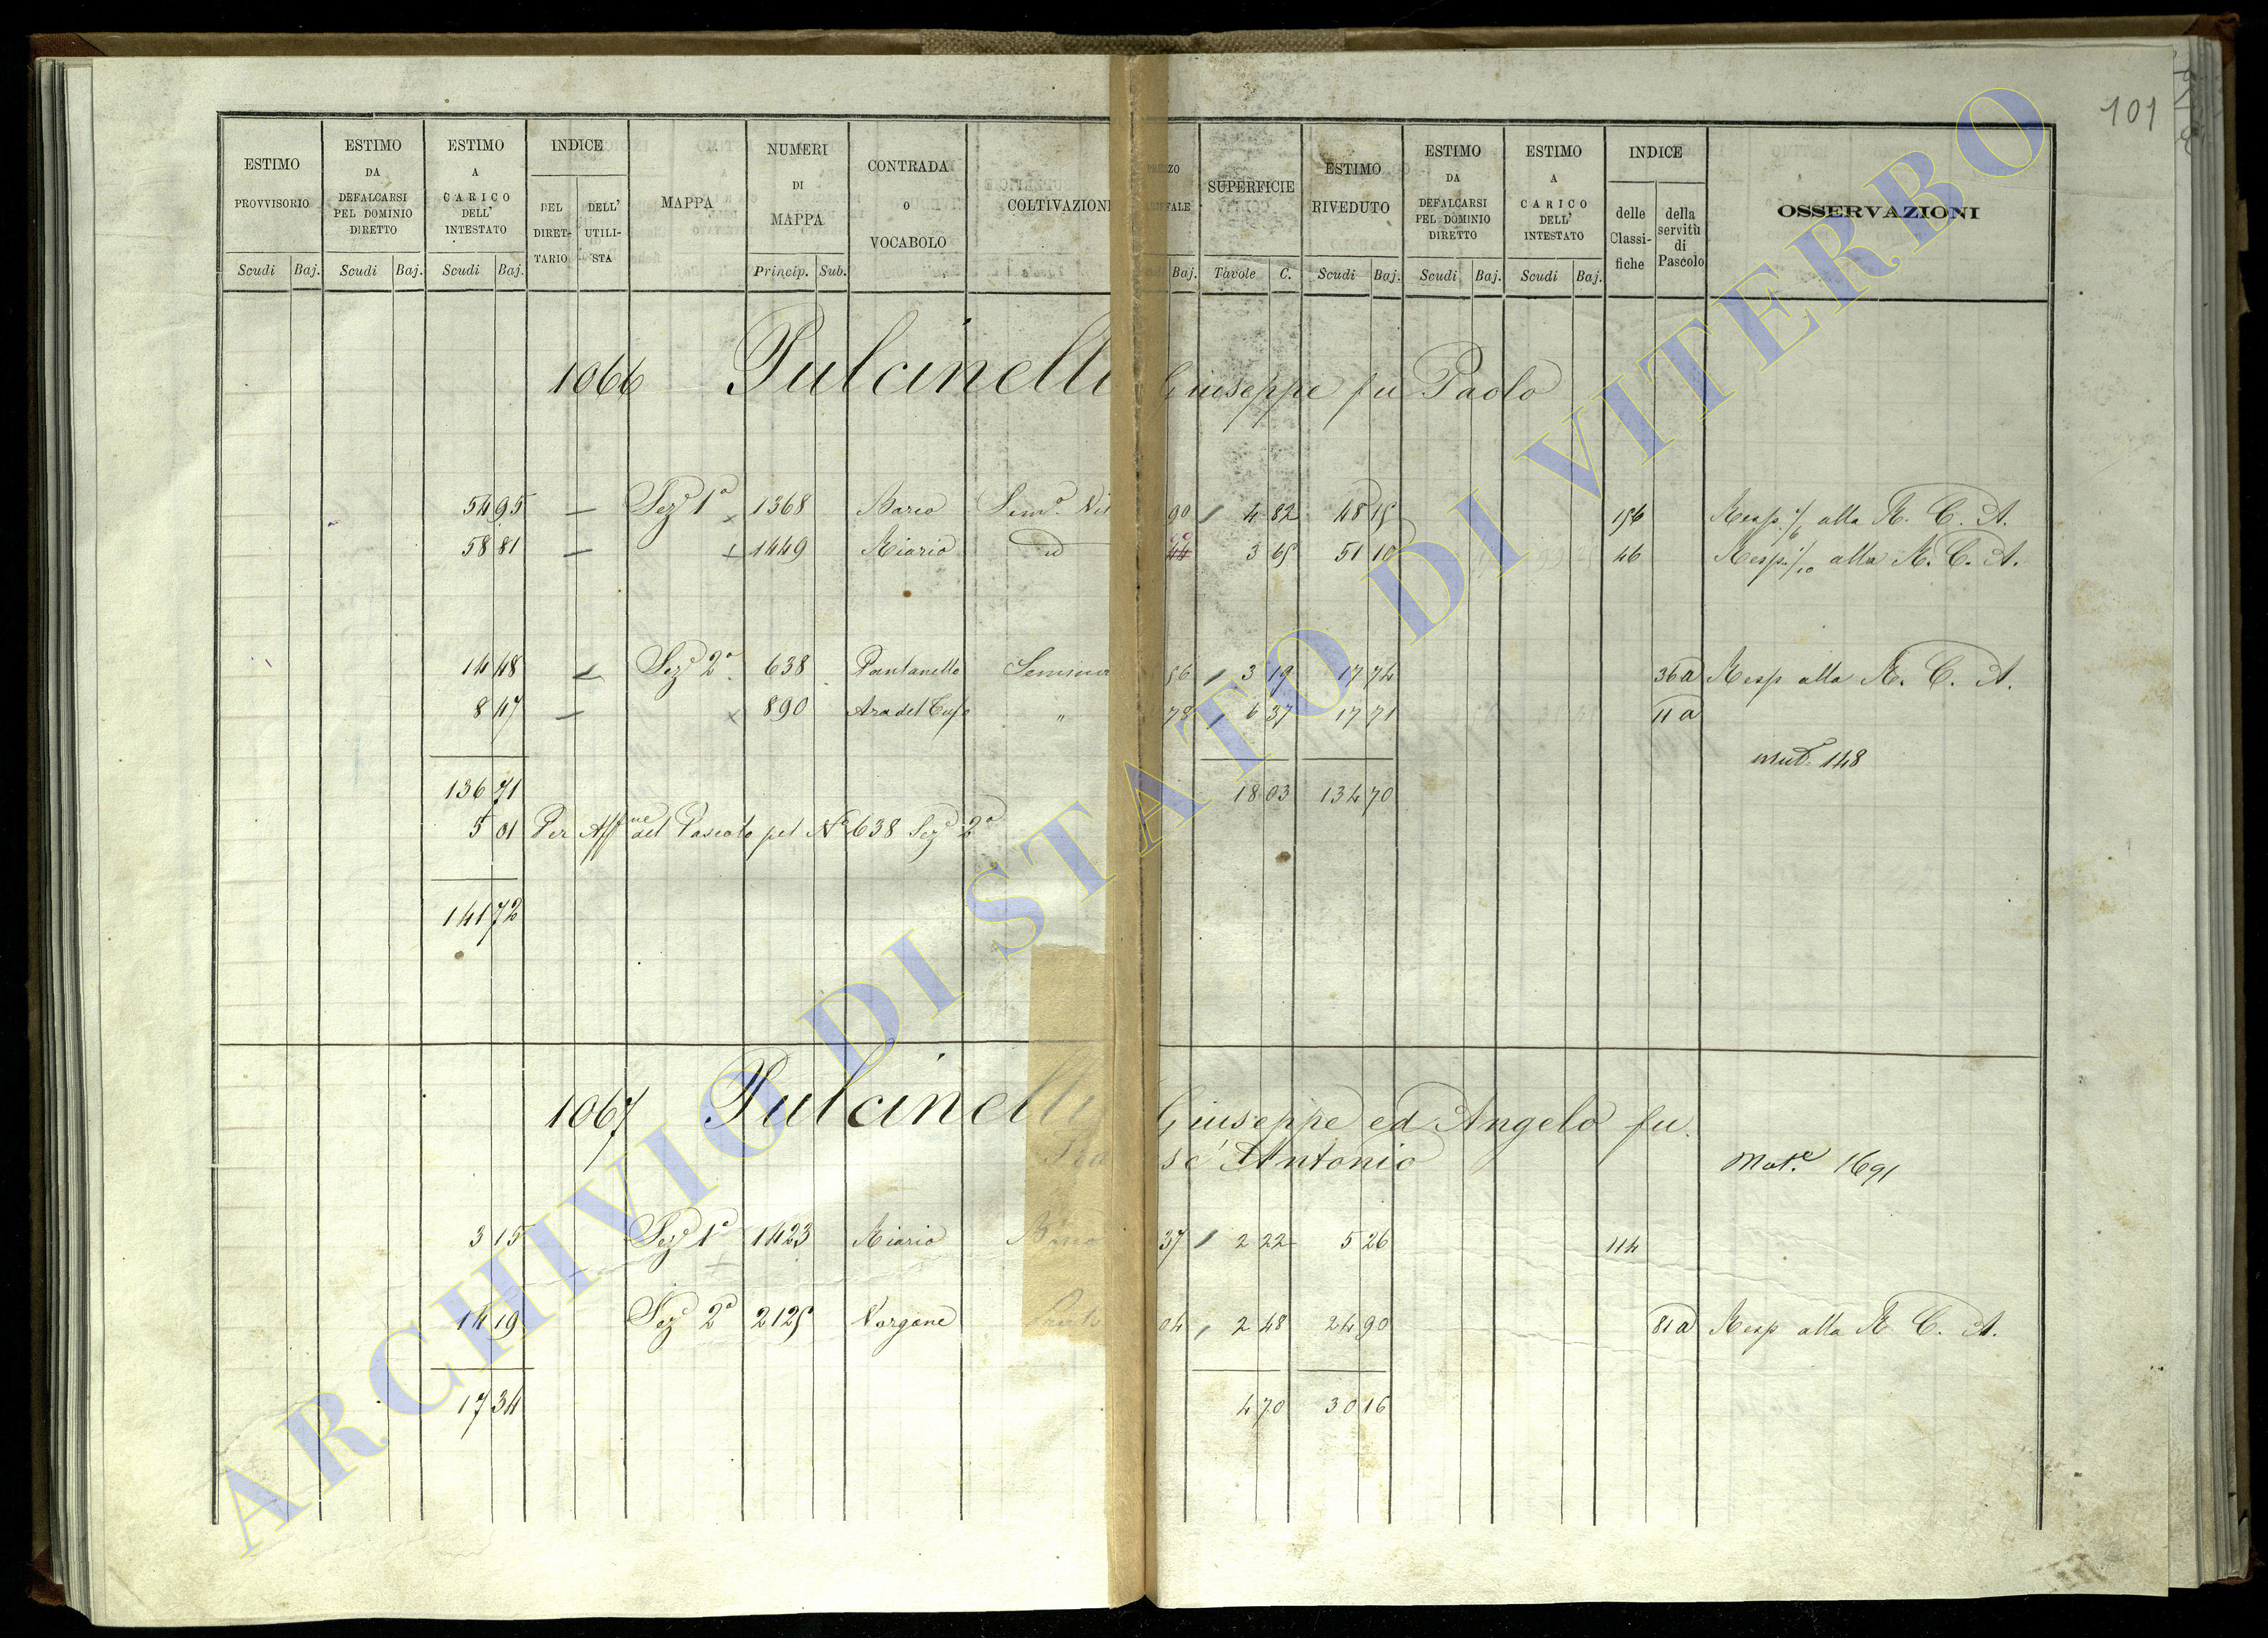 101
ESTIMO PROVVISORIO Scudi Baj.
ESTIMO DA DEFALCARSI PEL DOMINIO DIRETTO Scudi Baj.
ESTIMO A CARICO DELL' INTESTATO Scudi Baj.
INDICE DEL DIRETTARIO DELL' UTILISTA
MAPPA
NUMERI DI MAPPA Princip. Sub.
CONTRADA O VOCABOLO
COLTIVAZIONE
SUPERFICIE Tavole C.
ESTIMO RIVEDUTO Scudi Baj.
ESTIMO DA DEFALCARSI PEL DOMINIO DIRETTO Scudi Baj.
ESTIMO A CARICO DELL' INTESTATO Scudi Baj.
INDICE delle Classifiche della servitù di Pascolo
OSSERVAZIONI
1066 Pulcinelli Giuseppe fu Paolo
54 95 — Sez.e 1a 1368 Barco Sem.o Vit 90 4 82 48 15 156 Resp. 1/6 alla R. C. A.
58 81 — 1449 Riario d 44 3 65 51 10 46 Resp. 1/10 alla R. C. A.
14 48 — Sez.e 2a 638 Pantanello Semina 56 3 19 17 74 36 a Resp alla R. C. A.
8 47 — 890 Ara del Tufo " 78 6 37 17 71 11 a
mut. 148
136 71 18 03 134 70
5 01 Per Aff.ne del Pascolo pel No 638 Sez.e 2a
141 72
1067 Pulcinelli Giuseppe ed Angelo fu
se Antonio
Mat.e 1691
3 15 Sez.e 1a 1423 Riario 37 2 22 5 26 114
14 19 Sez.e 2a 2125 Vorgone 04 2 48 24 90 81 a Resp alla R. C. A.
17 34 4 70 30 16
ARCHIVIO DI STATO DI VITERBO